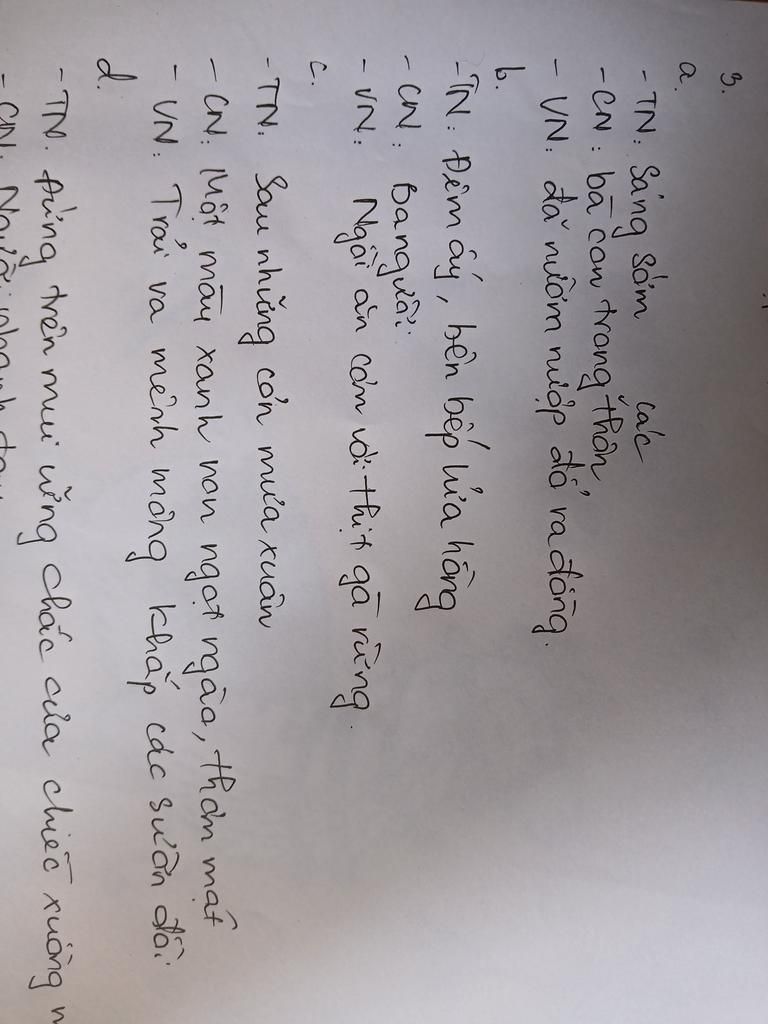 3.
a.
- TN: Sáng sớm
- CN: bà con trong các thôn
- VN: đã nườm nượp đổ ra đồng.
b.
- TN: Đêm ấy, bên bếp lửa hồng
- CN: Ba người
- VN: Ngồi ăn cơm với thịt gà rừng.
c.
- TN: Sau những cơn mưa xuân
- CN: Một màu xanh non ngọt ngào, thơm mát
- VN: Trải ra mênh mông khắp các sườn đồi
d.
- TN. Đứng trên mui vững chắc của chiếc xuồng
- CN: Người